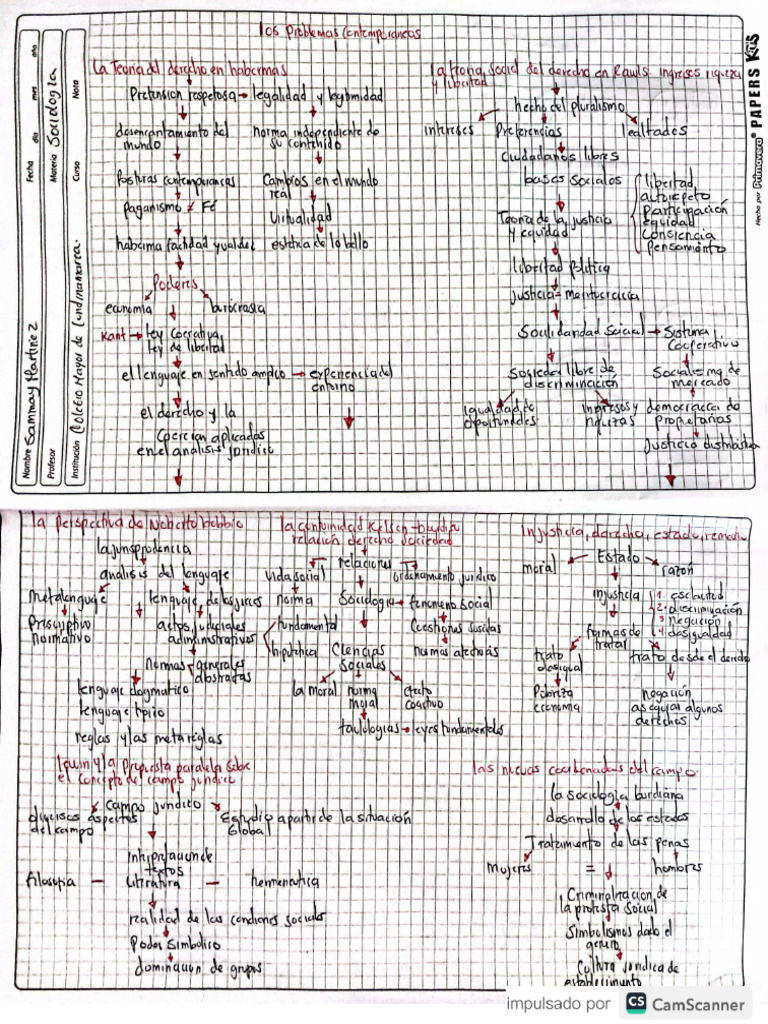 Los Problemas Contemporaneos
Nombre Sammay Martinez
Profesor
Institución Colegio Mayor de Cundinamarca
Fecha día mes año
Materia Sociología
Curso Nota
Hecho por Primavera PAPERS Kiis
La Teoria del derecho en habermas
Pretension respetosa → legalidad y legitimidad
desencantamiento del mundo
norma independiente de su contenido
Posturas contemporaneas
Cambios en el mundo real
Paganismo ≠ Fé
Virtualidad
estetica de lo bello
Poderes
economia
burocrasia
Kant → Ley Coerativa
Ley de libertad
el lenguaje en sentido amplio → experiencia del entorno
el derecho y la
Coercion aplicados
en el analisis juridico
La teoria social del derecho en Rawls ingresos riqueza
y libertad
hecho del pluralismo
intereses Preferencias lealtades
Ciudadanos libres
bases sociales
libertad
autorespeto
Participación
equidad
Consciencia
Pensamiento
Teoria de la justicia
y equidad
libertad politica
justicia = meritocracia
Soulidaridad Social → Sistema
Cooperativo
Sociedad libre de
discriminición
Socialismo de
mercado
igualdad de
oportunidades
ingresos y
riquezas
democracia de
propietarias
Justicia distributiva
la perspectiva de Noberto bobbio
la jurisprudencia
analisis del lenguaje
Metalenguaje
lenguaje de los jueces
Priscriptivo
normativo
actos judiciales
administrativos
normas generales
abstradas
lenguaje dogmatico
lenguaje tipico
reglas y las metareglas
la continuidad Kelsen -
relación derecho sociedad
relaciones
vida social
ordenamiento juridico
norma Sociologia → fenomeno social
fundamental
hipotetica
Cuestiones suscitas
Ciencias
Sociales
la moral
norma
moral
efecto
coactivo
taulologias → leyes fundamentales
Injusticia, derecho, estado,
moral
Estado
razón
injusticia
1. esclavitud
2. discriminación
3 negación
4 desigualdad
formas de
tratar
trato
desigual
trato desde el derecho
Pobreza
economia
negación
asequiar algunos
derechos
y la Propuesta paralela sobre
el concepto de campo juridico
Campo juridico
diversos aspectos
del campo
Estudio a partir de la situación
Global
Intripretacion de
textos
Filosofia — literatura — hermeneutica
realidad de las condiones sociales
Poder Simbolico
dominacion de grupos
las nuevas coordenadas del campo.
la sociologia burdiana
desarrollo de los estados
Tratamiento de las penas
Mujeres = hombres
Criminalización de
la protesta social
Simbolismos dado el
genero
Cultura Juridica de
establecimiento
impulsado por CS CamScanner